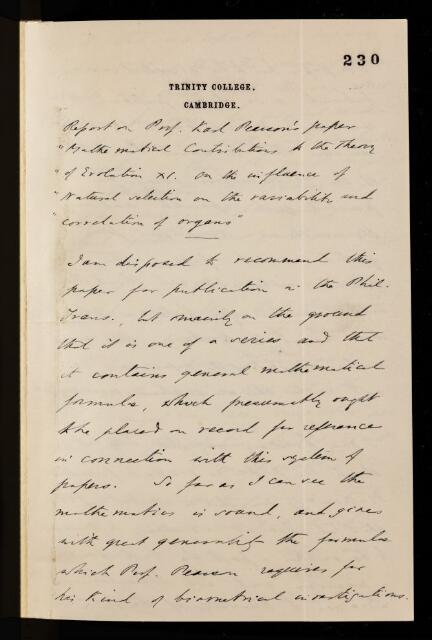 230
TRINITY COLLEGE,
CAMBRIDGE.
Report on Prof. Karl Pearson's paper
"Mathematical Contributions to the Theory
"of Evolution XI. On the influence of
"Natural selection on the variability and
"correlation of organs"
I am disposed to recommend this
paper for publication in the Phil.
Trans., but mainly on the ground
that it is one of a series and that
it contains general mathematical
formulae, which presumably ought
to be placed on record for reference
in connection with this system of
papers. So far as I can see the
mathematics is sound, and gives
with great generality the formulae
which Prof. Pearson requires for
his kind of biometrical investigations.